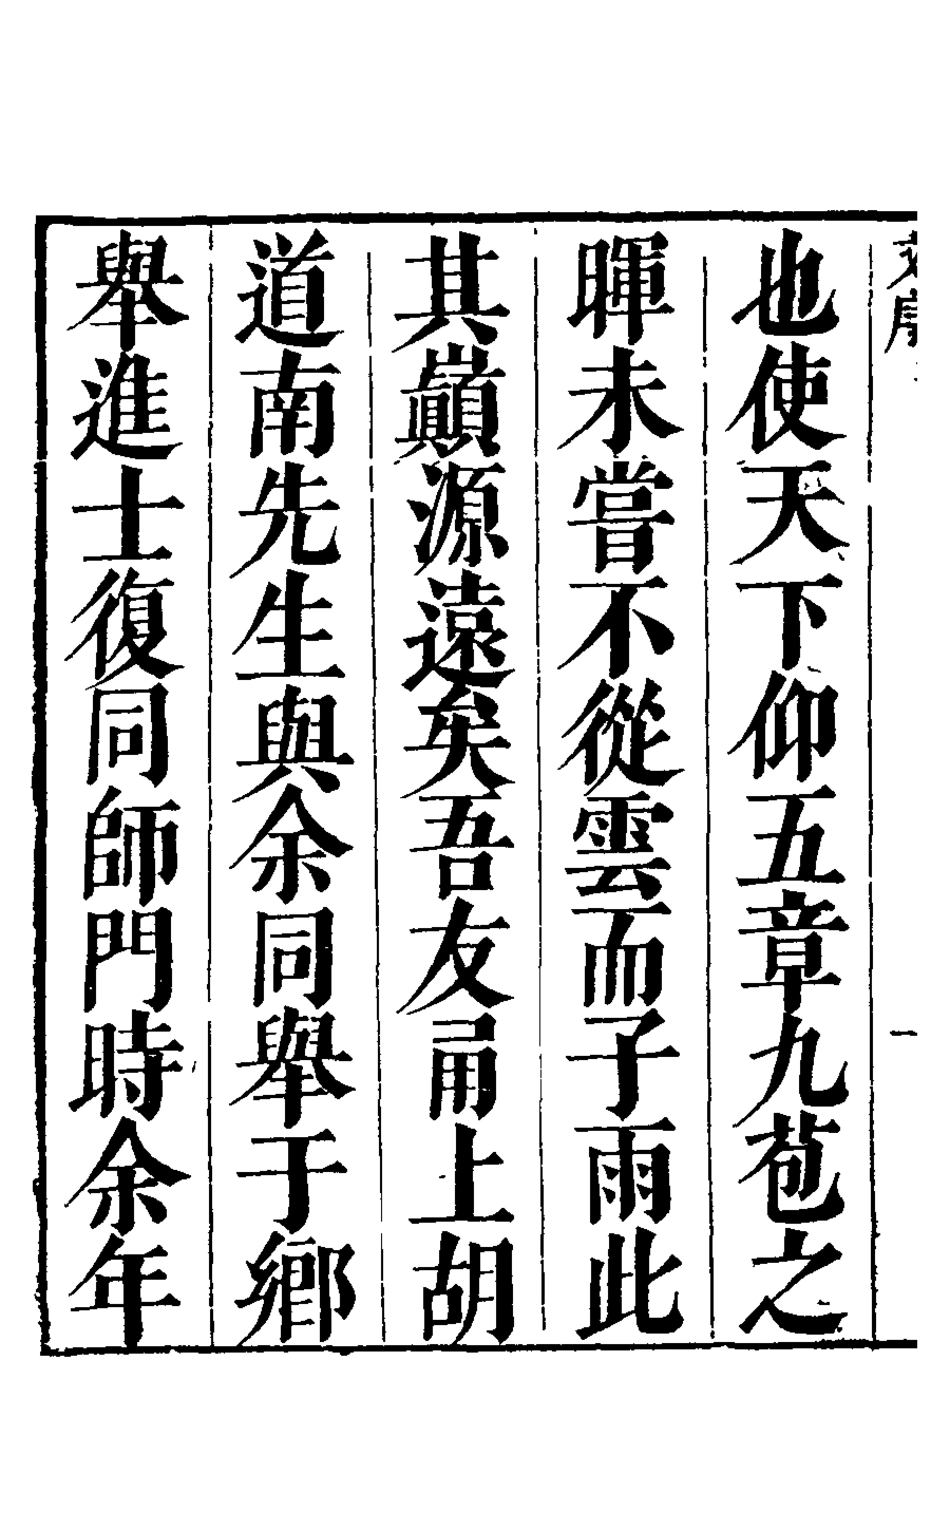 一
也使天下仰五章九苞之
暉未嘗不從雲而子雨此
其巔源遠矣吾友甬上胡
道南先生與余同舉于鄉
舉進士復同師門時余年